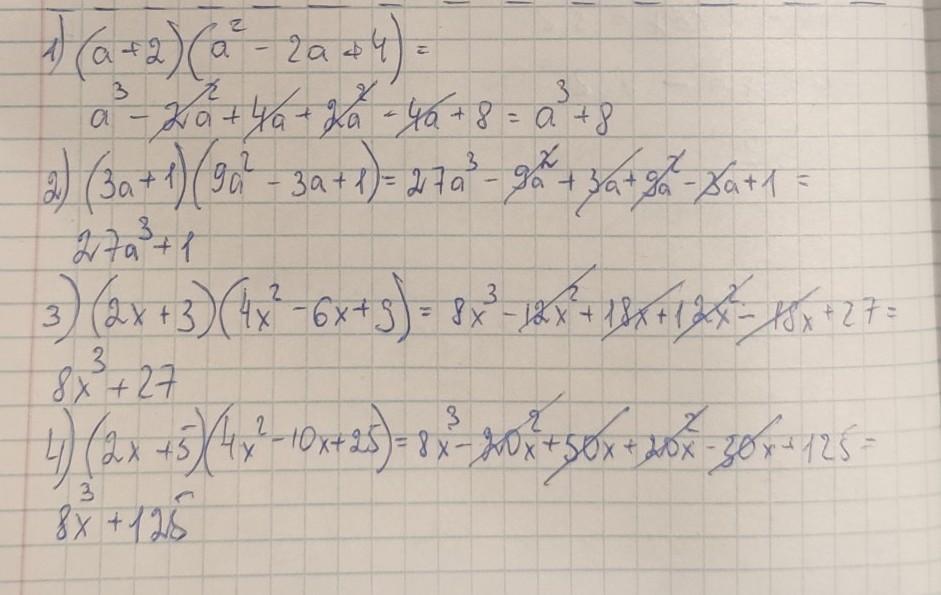 1) (a+2)(a² - 2a + 4) =
a³ - 2a² + 4a + 2a² - 4a + 8 = a³ + 8
2) (3a+1)(9a² - 3a + 1) = 27a³ - 9a² + 3a + 9a² - 3a + 1 =
27a³ + 1
3) (2x + 3)(4x² - 6x + 9) = 8x³ - 12x² + 18x + 12x² - 18x + 27 =
8x³ + 27
4) (2x + 5)(4x² - 10x + 25) = 8x³ - 20x² + 50x + 20x² - 50x + 125 =
8x³ + 125